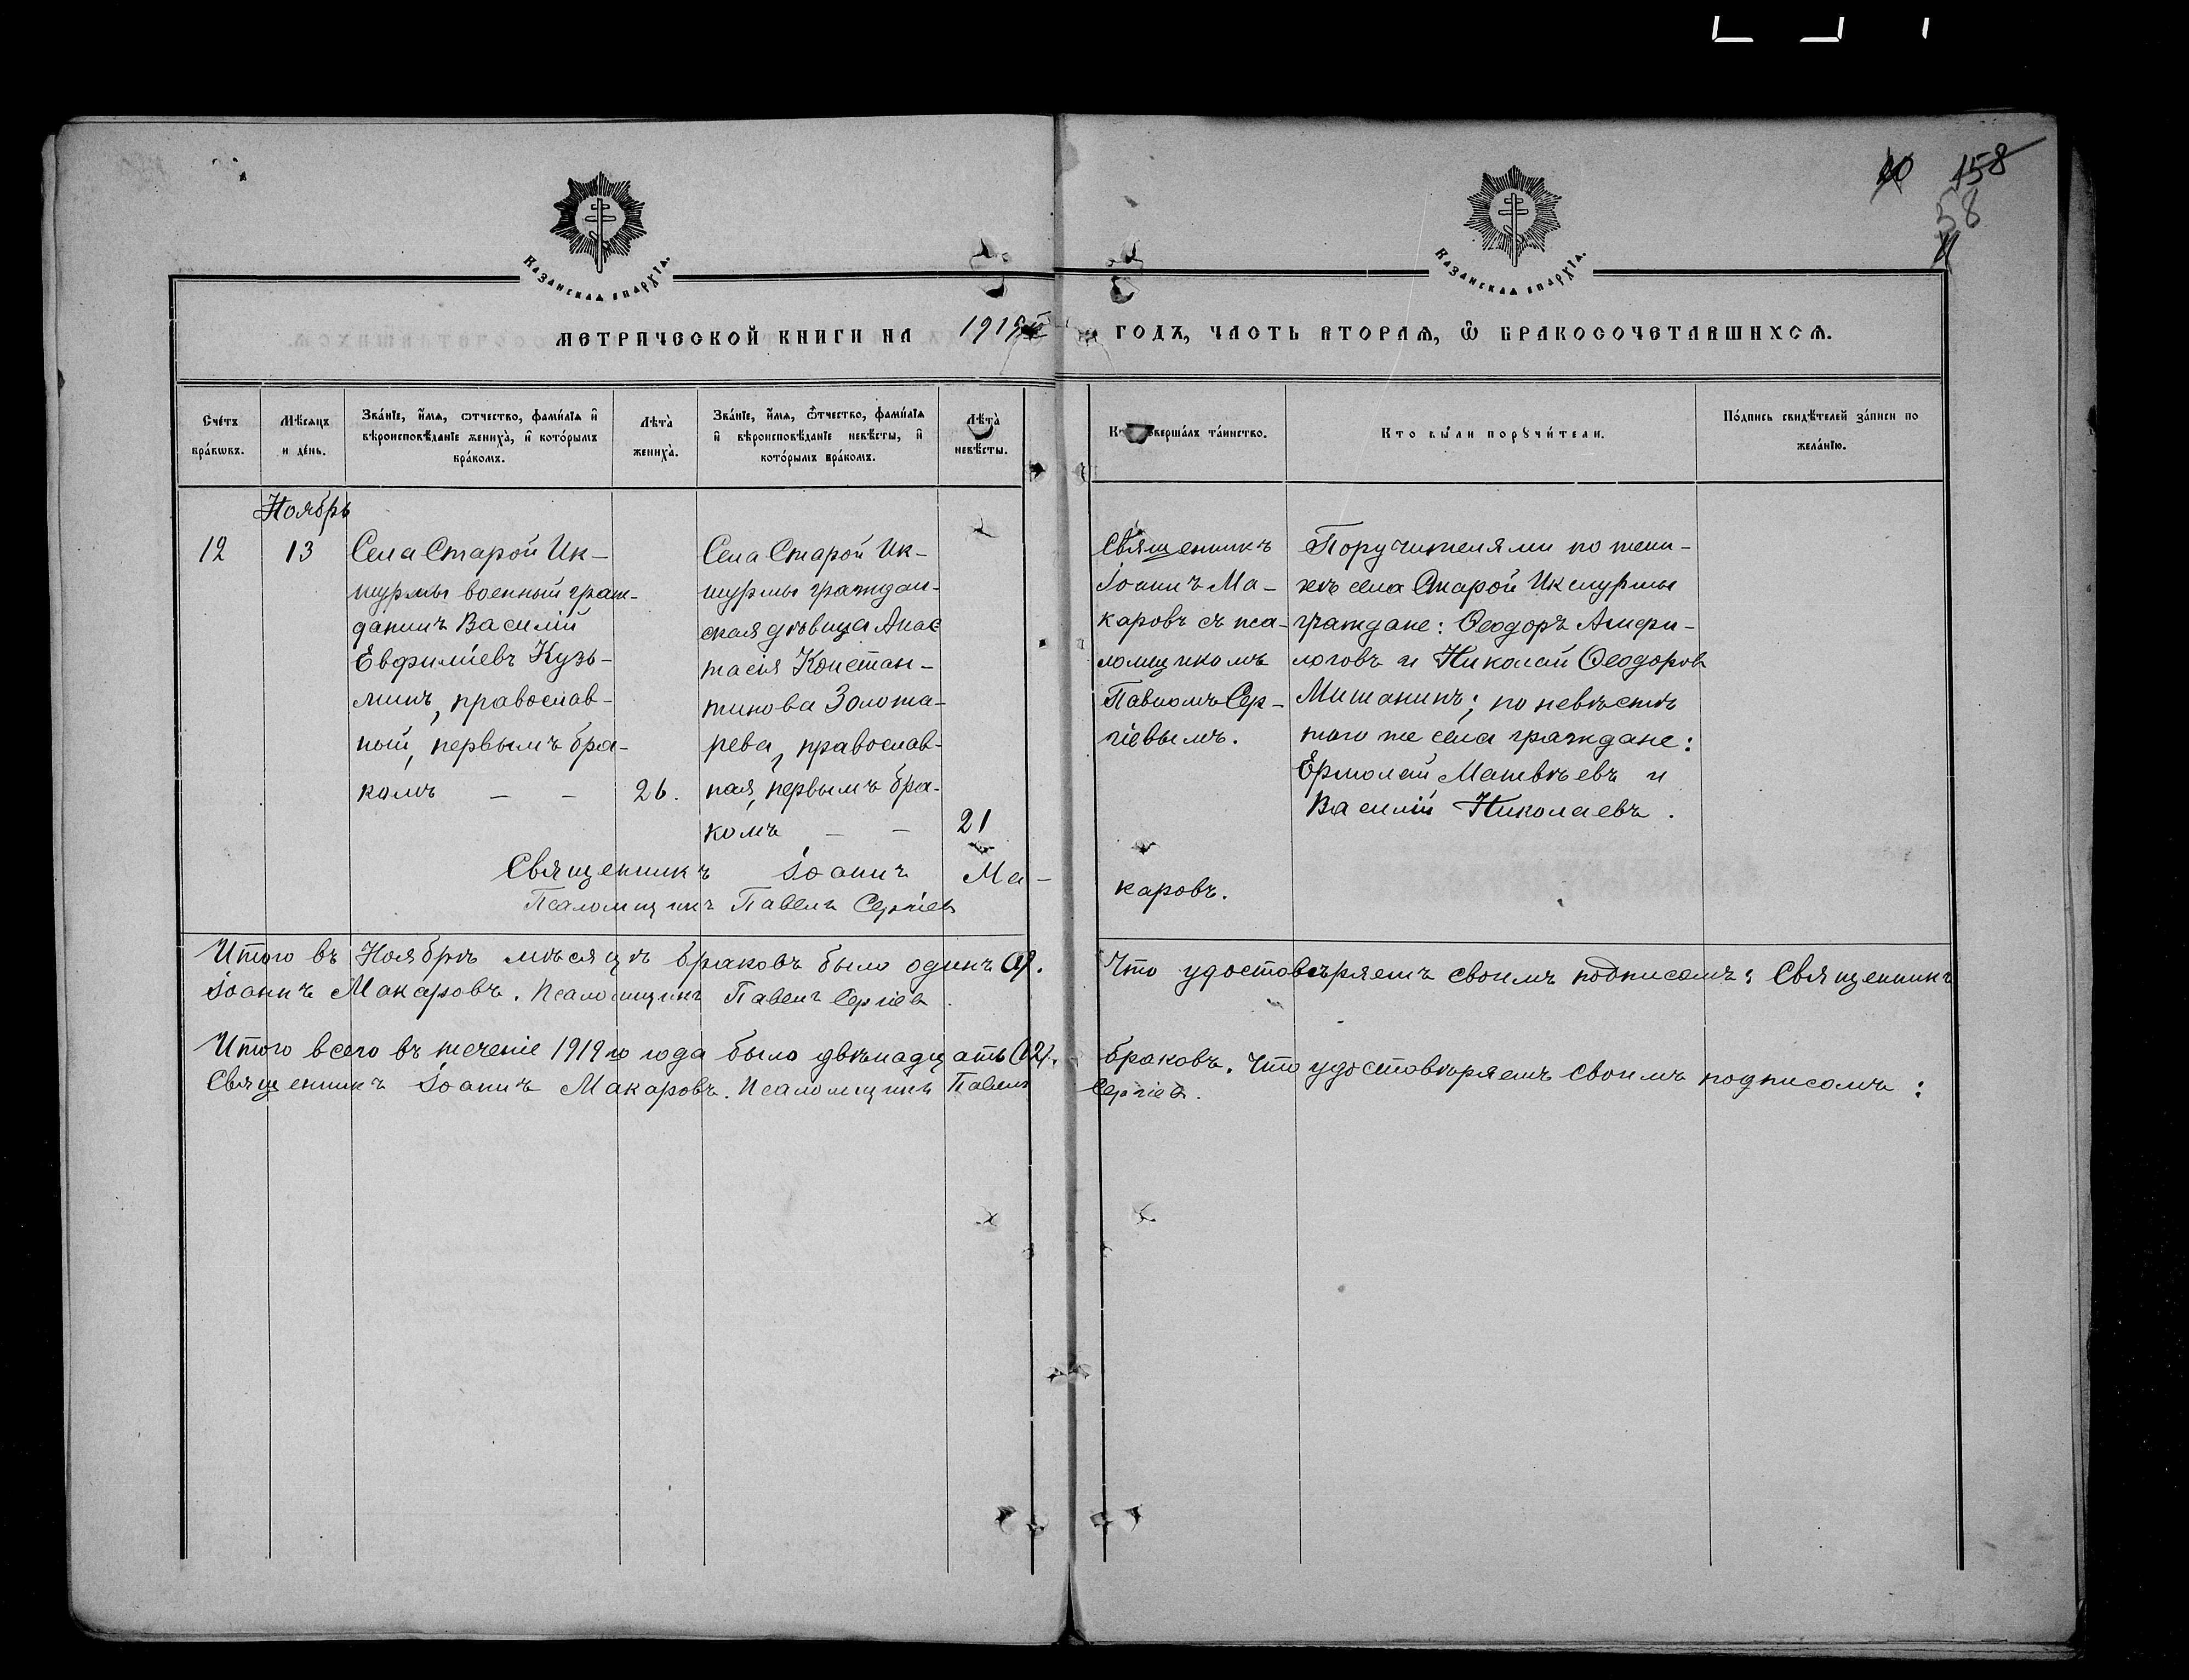 158
58
Казанская епархїа.
Казанская епархїа.
метрической книги на 1919й годъ, часть вторая, ѡ бракосочетавшихся.
Сче́тъ бра́кѡвъ.
Мѣсяцъ и де́нь.
Зва́нїе, и҆́мя, ѻтчество, фами́лїя и҆ вѣроисповѣданїе жениха̀, и҆ кото́рымъ бра́комъ.
Лѣта̀ жениха̀.
Зва́нїе, и҆́мя, ѻтчество, фами́лїя и҆ вѣроисповѣданїе невѣсты, и҆ кото́рымъ бра́комъ.
Лѣта̀ невѣсты.
соверша́лъ та́инство.
Кто бы́ли порꙋчи́тели.
По́дпись свидѣтелей за́писи по жела́нїю.
Ноябрь
12
13
Села Старой Ик-
шурмы военный граж-
данинъ Василій
Евфиміевъ Кузь-
минъ, православ-
ный, первымъ бра-
комъ — —
26.
Села Старой Ик-
шурмы граждан-
ская дѣвица Анас
тасія Констан-
тинова Золота-
рева, православ-
ная, первымъ бра-
комъ — —
21
Священникъ
Іоаннъ Ма-
каровъ съ пса-
ломщикомъ
Павломъ Сер-
гіевымъ.
Поручителями по жени-
хѣ села Старой Икшурмы
граждане: Ѳеодоръ Амфи-
логовъ и Николай Ѳеодоров
Мишанинъ; по невѣстѣ
того же села граждане:
Ермолай Матвѣевъ и
Василій Николаевъ.
Священникъ Іоаннъ Ма-каровъ.
Псаломщикъ Павелъ Сергіев
Итого въ Ноябрѣ мѣсяцѣ браковъ было одинъ (1). Что удостовѣряемъ своимъ подписомъ: Священникъ
Іоаннъ Макаровъ. Псаломщикъ Павелъ Сергіев.
Итого всего въ теченіе 1919 го года было двѣнадцать (12). браковъ. Что удостовѣряемъ своимъ подписомъ:
Священникъ Іоаннъ Макаровъ. Псаломщикъ Павелъ Сергіев.